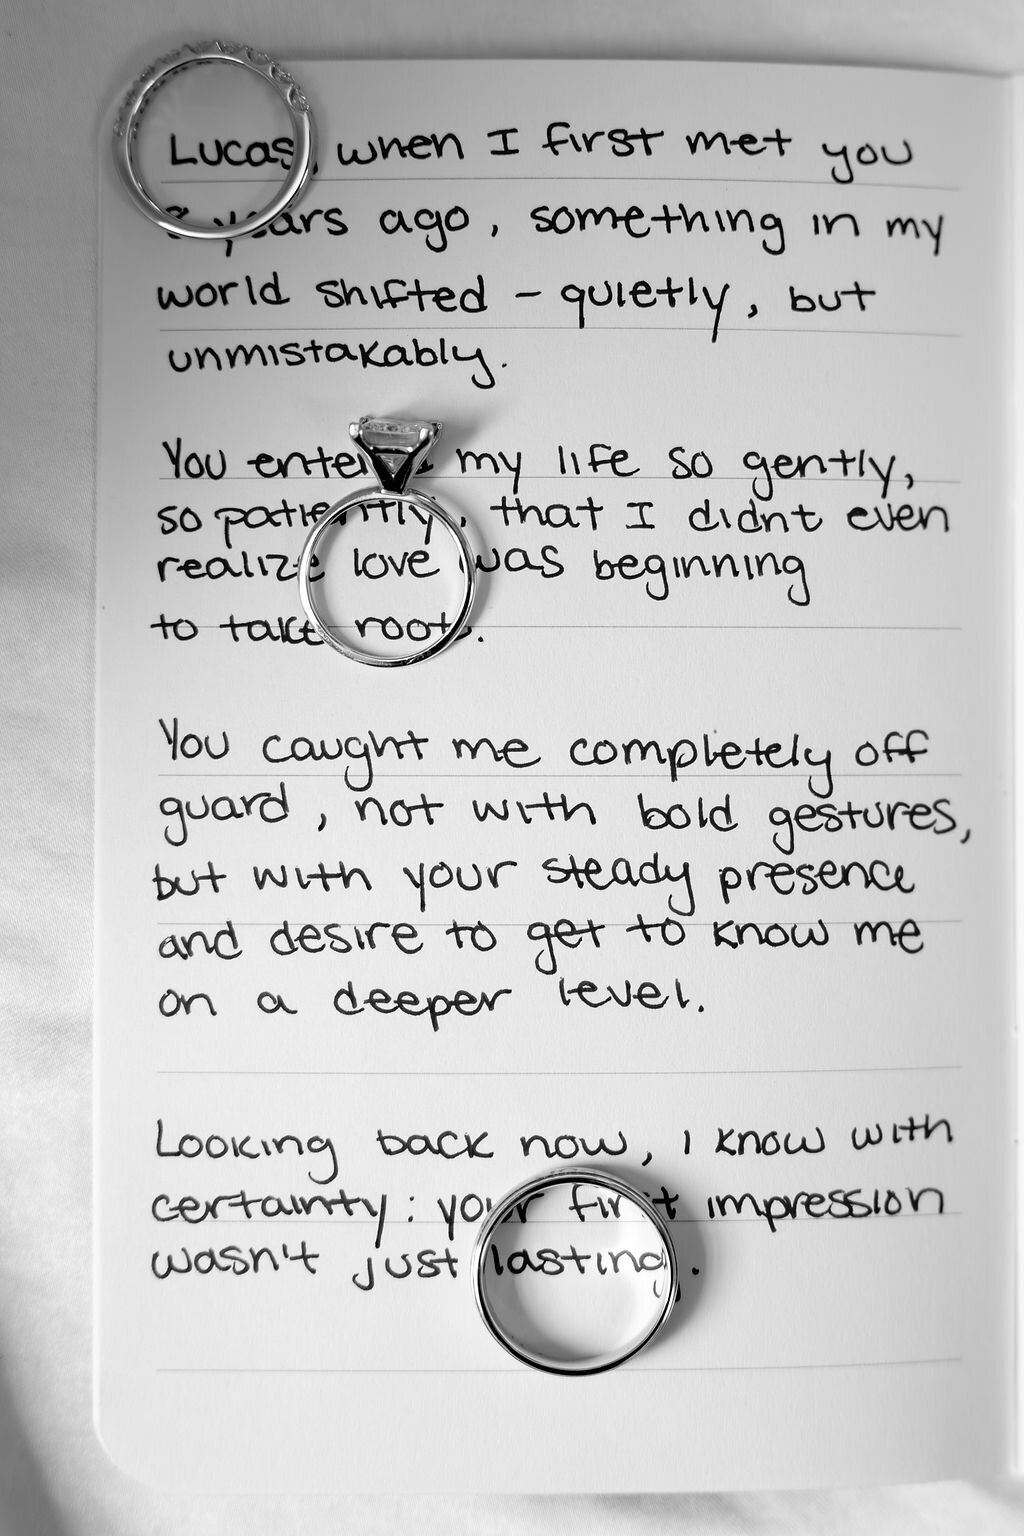 Lucas, when I first met you
years ago, something in my
world shifted - quietly, but
unmistakably.
You entered my life so gently,
so patiently, that I didnt even
realize love was beginning
to take root.
You caught me completely off
guard, not with bold gestures,
but with your steady presence
and desire to get to know me
on a deeper level.
Looking back now, I know with
certainty: your first impression
wasn't just lasting.